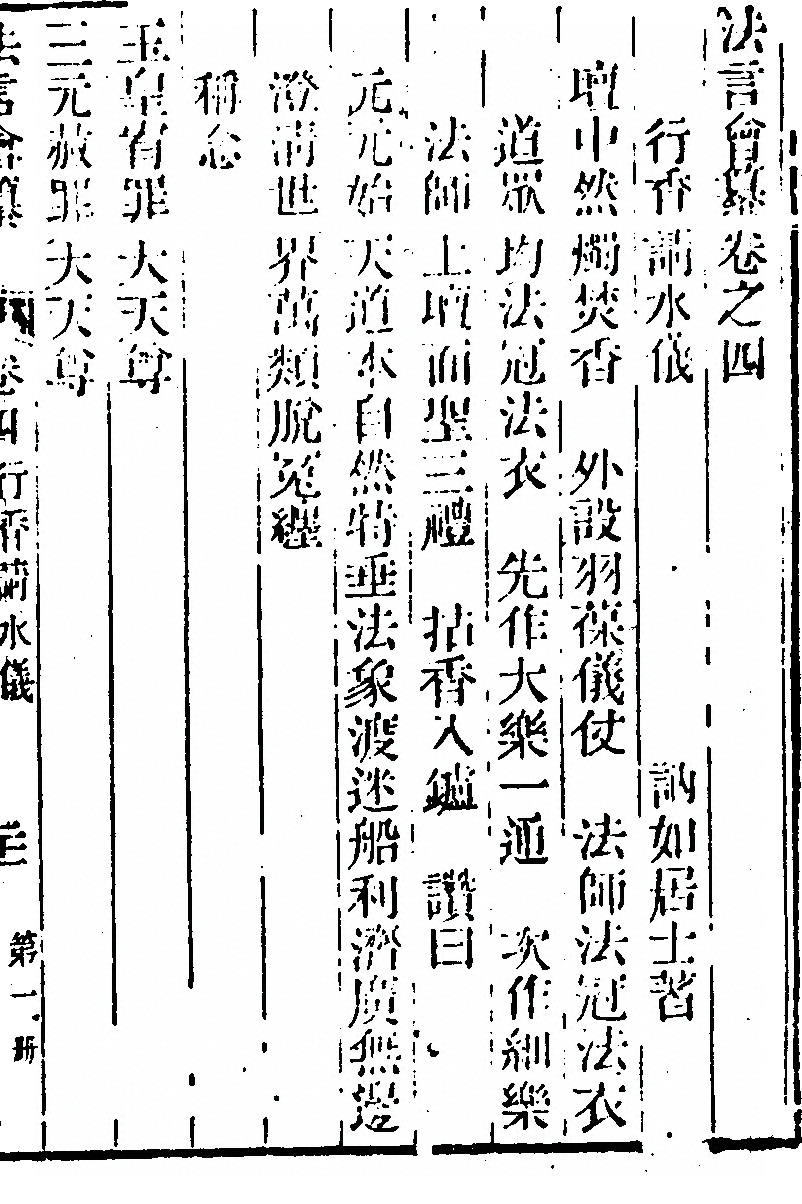 法言會纂卷之四
行香請水儀 訥如居士著
壇中然燭焚香 外設羽葆儀仗 法師法冠法衣
道眾均法冠法衣 先作大樂一通 次作細樂
法師上壇面聖三禮 拈香入鑪 讚曰
元元始天道本自然特垂法象渡迷船利濟廣無邊
澄清世界萬類脫冤纏
稱念
玉皇宥罪大天尊
三元赦罪大天尊
法言會纂 卷四 行香請水儀 第一册